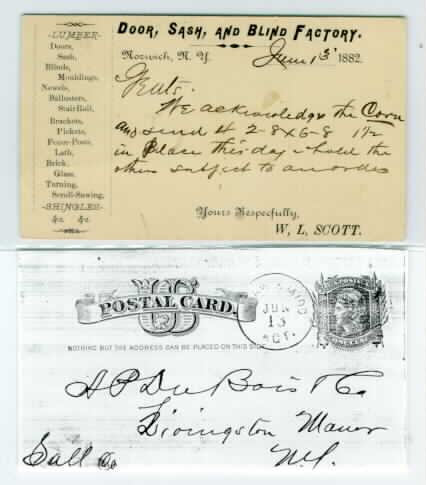 DOOR, SASH, AND BLIND FACTORY.
-LUMBER-
Doors,
Sash,
Blinds,
Mouldings,
Newels,
Balusters,
Stair Rail,
Brackets,
Pickets,
Fence-Posts,
Lath,
Brick,
Glass,
Turning,
Scroll-Sawing,
-SHINGLES-
&c. &c.
Norwich, N. Y. June 13 1882.
Gents.
We acknowledge the
and send 4 2-8x6-8 1½
in place this day & hold the
others subject to an order
Yours Respecfully,
W. L. SCOTT.
US
POSTAL CARD.
NOTHING BUT THE ADDRESS CAN BE PLACED ON THIS SIDE
JUN
13
A P DuBois & Co
Livingston Manor
Sull Co
N.Y.